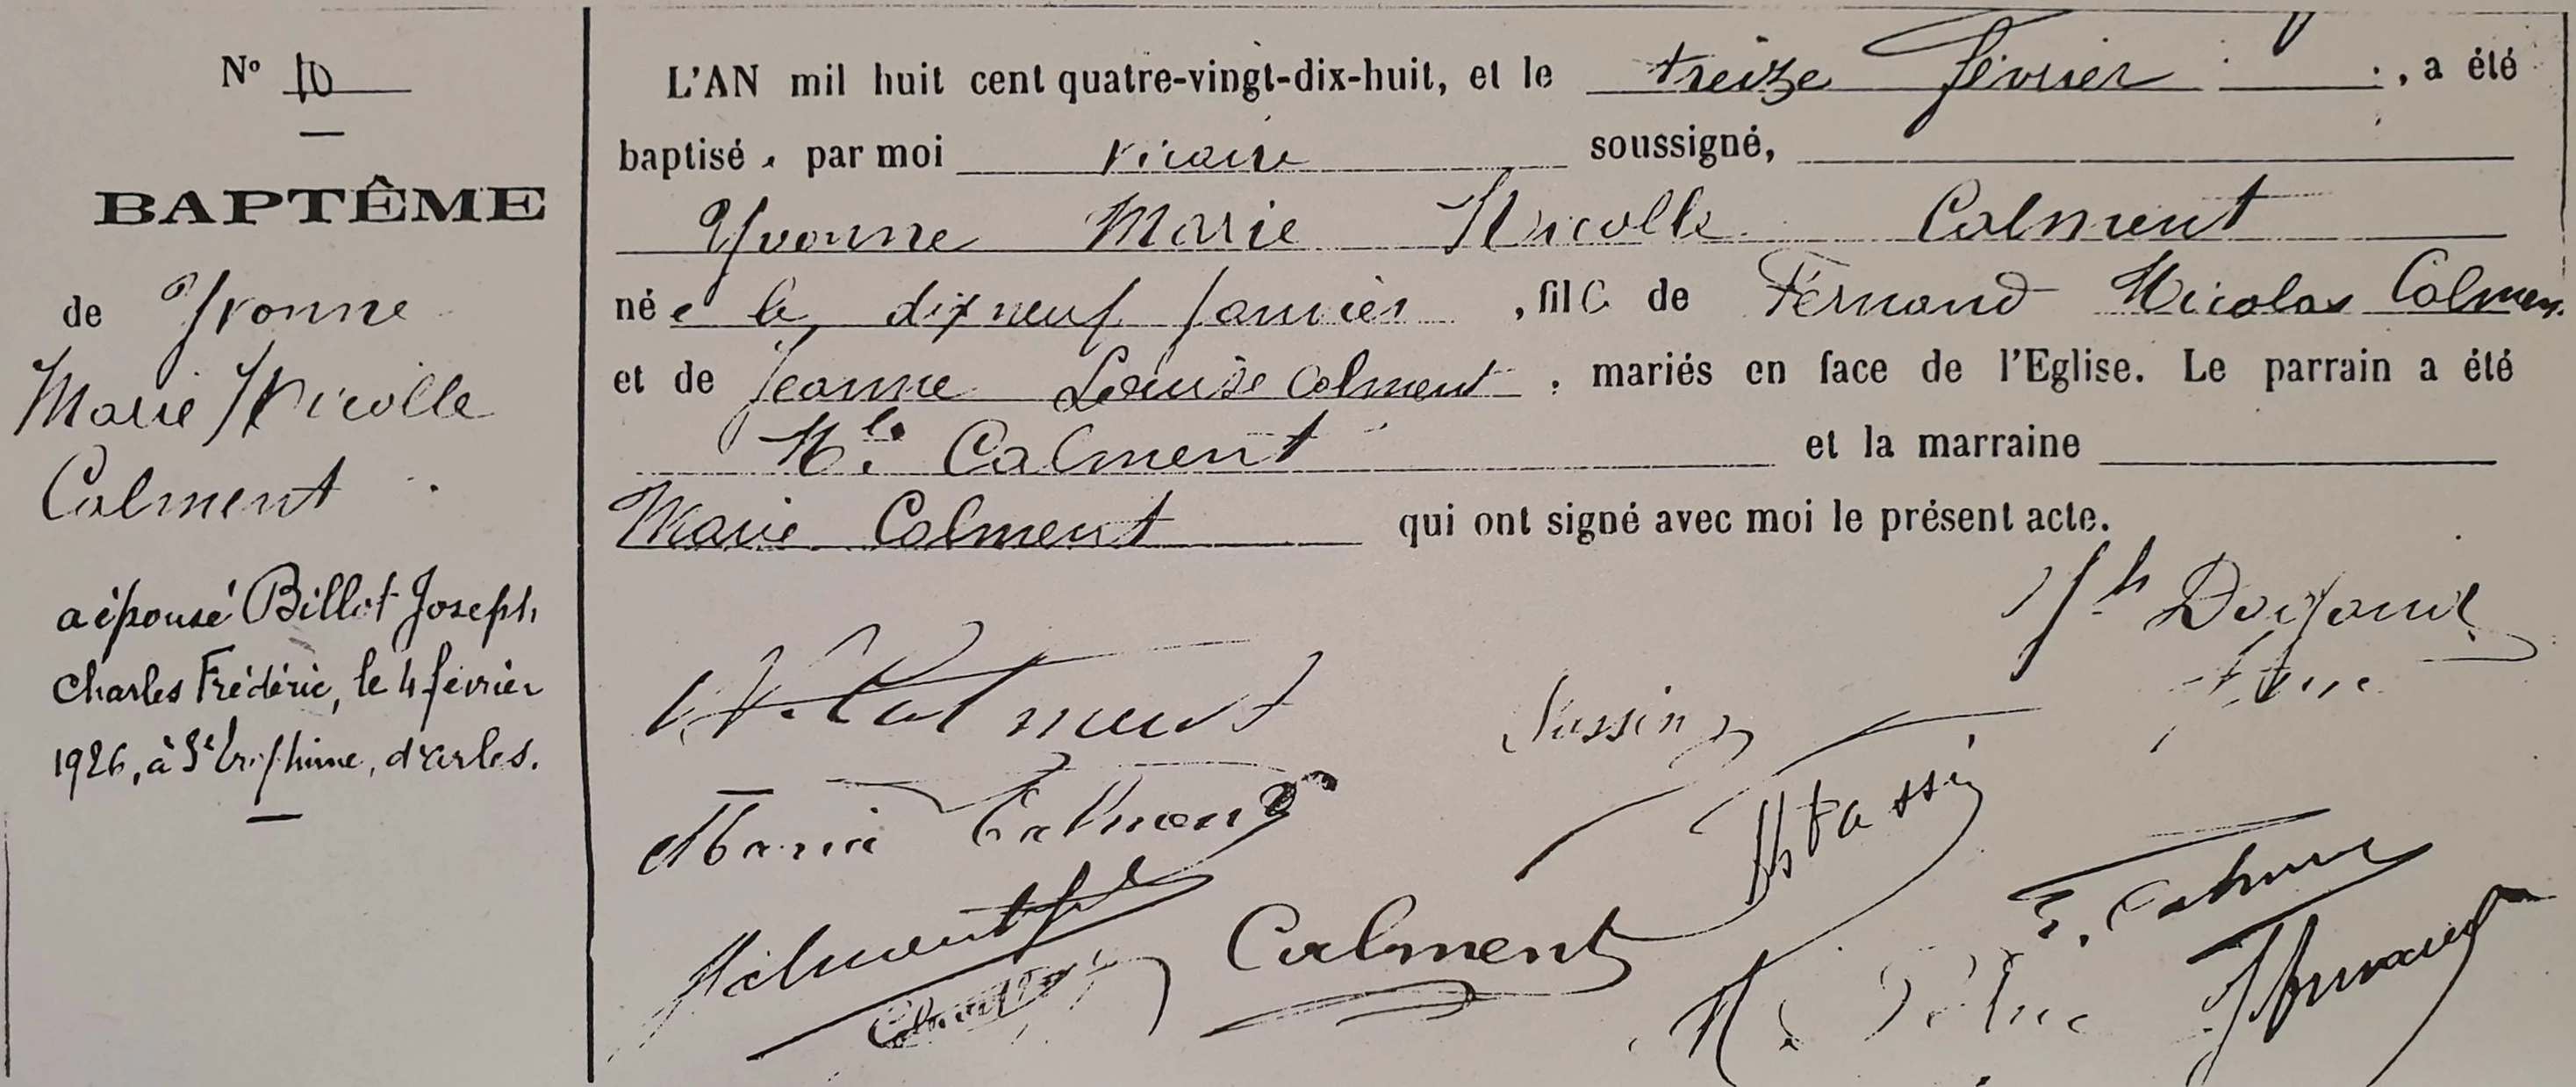 N° 10
BAPTÊME
de Yvonne
Marie Nicolle
Calment
a épousé Billot Joseph
Charles Frédéric, le 4 février
1926, à St Trophime, d'Arles.
L'AN mil huit cent quatre-vingt-dix-huit, et le treize février, a été
baptisé, par moi vicaire soussigné,
Yvonne Marie Nicolle Calment
née le dix neuf janvier, fille de Fernand Nicolas Calment
et de Jeanne Louise Calment, mariés en face de l'Eglise. Le parrain a été
Nlas Calment et la marraine
Marie Calment qui ont signé avec moi le présent acte.
N. Calment
Marie Calment
Calment
E. Calment